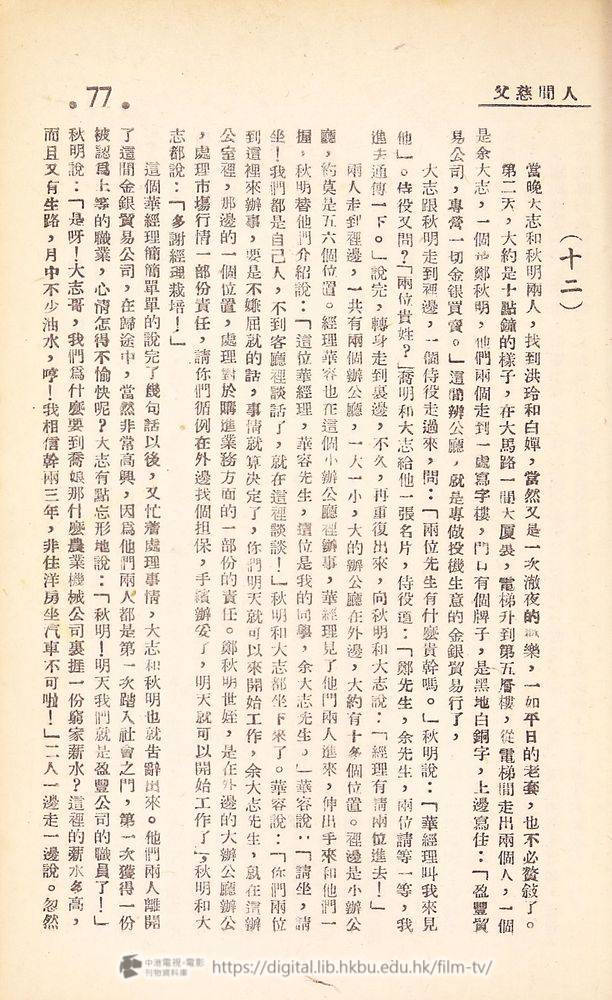 人間慈父
77
（十二）
當晚大志和秋明兩人，找到洪玲和白嬋，當然又是一次澈夜的歡樂，一如平日的老套，也不必贅敍了。
第二天，大約是十點鐘的樣子，在大馬路一間大厦裏，電梯升到第五層樓，從電梯間走出兩個人，一個
是余大志，一個是鄭秋明，他們兩個走到一處寫字樓，門口有個牌子，是黑地白銅字，上邊寫住：「盈豐貿
易公司，專營一切金銀買賣。」這間辦公廳，就是專做投機生意的金銀貿易行了，
大志跟秋明走到裡邊，一個侍役走過來，問：「兩位先生有什麼貴幹嗎。」秋明說：「華經理叫我來見
他」。侍役又問？「兩位貴姓？」秋明和大志給他一張名片，侍役道：「鄭先生，余先生，兩位請等一等，我
進去通傳一下。」說完，轉身走到裏邊，不久，再重復出來，向秋明和大志說：「經理有請兩位進去！」
兩人走到裡邊，一共有兩個辦公廳，一大一小，大的辦公廳在外邊，大約有十多個位置。裡邊是小辦公
廳，約莫是五六個位置。經理華容也在這個小辦公廳裡辦事，華經理見了他們兩人進來，伸出手來和他們一
握，秋明替他們介紹說：「這位華經理，華容先生，這位是我的同學，余大志先生。」華容說：「請坐，請
坐！我們都是自己人，不到客廳裡談話了，就在這裡談談！」秋明和大志都坐下來了。華容說：「你們兩位
到這裡來辦事，要是不嫌屈就的話，事情就算决定了，你們明天就可以來開始工作，余大志先生，就在這辦
公室裡，那邊的一個位置，處理對於購進業務方面的一部份的責任。鄭秋明世姪，是在外邊的大辦公廳辦公
，處理市塲行情一部份責任，請你們循例在外邊找個担保，手續辦妥了，明天就可以開始工作了」，秋明和大
志都說：「多謝經理栽培！」
這個華經理簡簡單單的說完了幾句話以後，又忙着處理事情，大志和秋明也就告辭出來。他們兩人離開
了這間金銀貿易公司，在歸途中，當然非常高興，因爲他們兩人都是第一次踏入社會之門，第一次獲得一份
被認爲上等的職業，心情怎得不愉快呢？大志有點忘形地說：「秋明！明天我們就是盈豐公司的職員了！」
秋明說：「是呀！大志哥，我們爲什麼要到喬娘那什麼農業機械公司裏捱一份窮家薪水？這裡的薪水多高，
而且又有生路，月中不少油水，哼！我相信幹兩三年，非住洋房坐汽車不可啦！」二人一邊走一邊說。忽然
中港電視·電影
刊物資料庫
https://digital.lib.hkbu.edu.hk/film-tv/